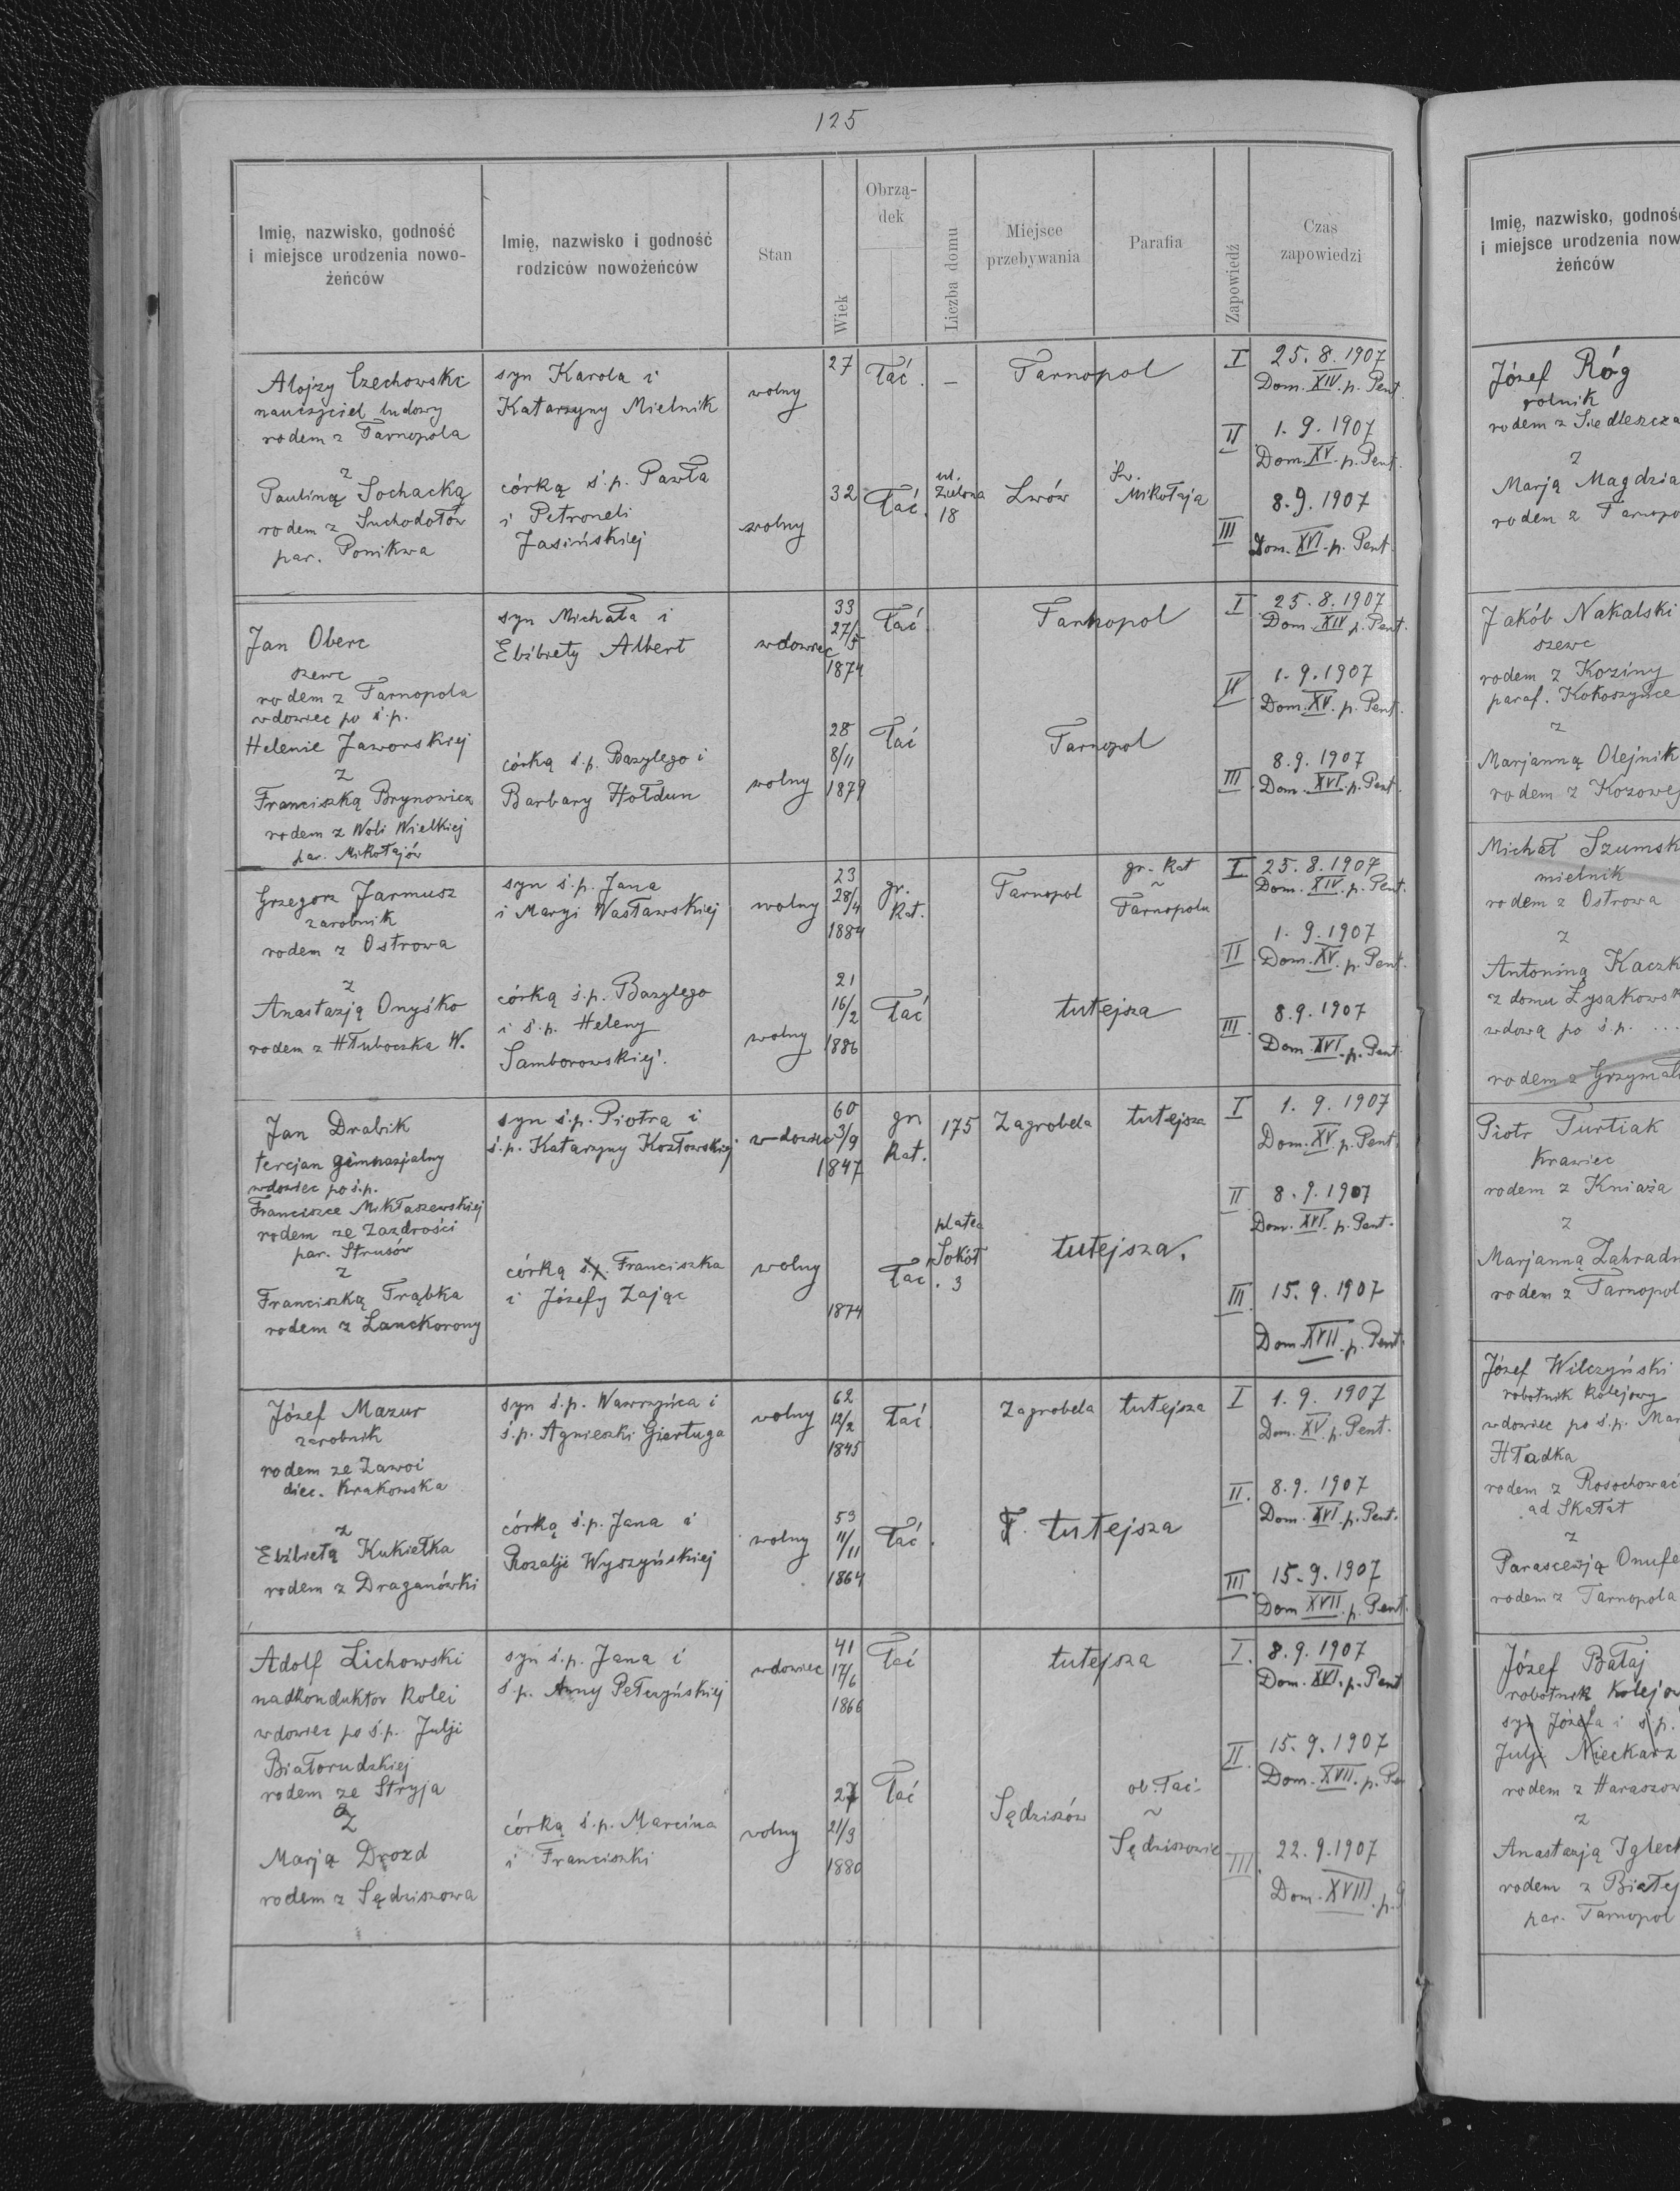 125
Imię, nazwisko, godność
i miejsce urodzenia nowo-
żeńców
Imię, nazwisko i godność
rodziców nowożeńców
Stan
Wiek
Obrzą-
dek
Liczba domu
Miejsce
przebywania
Parafia
Zapowiedź
Czas
zapowiedzi
Alojzy Czechowski
nauczyciel ludowy
rodem z Tarnopola
z
Pauliną Sochacką
rodem z Suchodołów
par. Ponikwa
syn Karola i
Katarzyny Mielnik
córką ś.p. Pawła
i Petroneli
Jasińskiej
wolny
wolny
27
32
łać.
łać.
–
ul.
Zielona
18
Tarnopol
Lwów
Św.
Mikołaja
I 25. 8. 1907
Dom. XIV. p. Pent.
II 1. 9. 1907
Dom. XV. p. Pent.
8. 9. 1907
III Dom. XVI. p. Pent.
Jan Oberc
szewc
rodem z Tarnopola
wdowiec po ś.p.
Helenie Jaworskiej
z
Franciszką Brynowicz
rodem z Woli Wielkiej
par. Mikołajów
syn Michała i
Elżbiety Albert
córką ś.p. Bazylego i
Barbary Hołdun
wdowiec
wolny
33
27/5
1874
28
8/11
1879
łać
łać
Tarnopol
Tarnopol
I 25. 8. 1907
Dom. XIV p. Pent.
II 1. 9. 1907
Dom. XV. p. Pent.
III 8. 9. 1907
Dom. XVI. p. Pent.
Grzegorz Jarmusz
zarobnik
rodem z Ostrowa
z
Anastazją Onyśko
rodem z Hłuboczka W.
syn ś.p. Jana
i Maryi Wasławskiej
córką ś.p. Bazylego
i ś.p. Heleny
Samborowskiej.
wolny
wolny
23
28/4
1884
21
16/2
1886
gr.
kat.
łać
Tarnopol
gr. kat
~
Tarnopolu
tutejsza
I 25. 8. 1907
Dom. XIV. p. Pent.
II 1. 9. 1907
Dom. XV. p. Pent.
III 8. 9. 1907
Dom. XVI. p. Pent.
Jan Drabik
tercjan gimnazjalny
wdowiec po ś.p.
Franciszce Mikłaszewskiej
rodem ze Zazdrości
par. Strusów
z
Franciszką Trąbka
rodem z Lanckorony
syn ś.p. Piotra i
ś.p. Katarzyny Kozłowskiej
córką ś.p. Franciszka
i Józefy Zając
wdowiec
wolny
60
3/9
1847
1874
gr
kat.
łać.
175
platea
Sokół
3
Zagrobela
tutejsza
tutejsza.
I 1. 9. 1907
Dom. XV. p. Pent.
II 8. 9. 1907
Dom. XVI. p. Pent.
III 15. 9. 1907
Dom. XVII. p. Pent.
Józef Mazur
zarobnik
rodem ze Zawoi
diec. Krakowska
z
Elżbietą Kukiełka
rodem z Draganówki
syn ś.p. Wawrzyńca i
ś.p. Agnieszki Giertuga
córką ś.p. Jana i
Rozalji Wyszyńskiej
wolny
wolny
62
12/2
1845
53
11/11
1864
łać
łać.
Zagrobela
tutejsza
T. tutejsza
I 1. 9. 1907
Dom. XV. p. Pent.
II. 8. 9. 1907
Dom. XVI. p. Pent.
III 15. 9. 1907
Dom XVII. p. Pent.
Adolf Lichowski
nadkonduktor kolei
wdowiec po ś.p. Julji
Białorudzkiej
rodem ze Stryja
z
Marją Drozd
rodem z Sędziszowa
syn ś.p. Jana i
ś.p. Anny Pełczyńskiej
córką ś.p. Marcina
i Franciszki
wdowiec
wolny
41
17/6
1866
27
21/9
1880
łać
łać
tutejsza
Sędziszów
ob. łać.
~
Sędziszowie
I. 8. 9. 1907
Dom. XVI. p. Pent
II. 15. 9. 1907
Dom. XVII. p. Pe
III. 22. 9. 1907
Dom. XVIII. p.
Imię, nazwisko, godnoś
i miejsce urodzenia now
żeńców
Józef Róg
rolnik
rodem z Siedleszcza
z
Marją Magdzia
rodem z Tarnopo
Jakób Nakalski
szewc
rodem z Koziny
paraf. Kokoszyńce
z
Marjanną Olejnik
rodem z Kozowej
Michał Szumsk
mielnik
rodem z Ostrowa
z
Antoniną Kaczk
z domu Łysakowsk
wdową po ś.p. ...
rodem z Grzymał
Piotr Turtiak
krawiec
rodem z Kniaża
z
Marjanną Zahradn
rodem z Tarnopol
Józef Wilczyński
robotnik kolejowy
wdowiec po ś.p. Mar
Hładka
rodem z Rosochować
ad Skałat
z
Parascewją Onufe
rodem z Tarnopola
Józef Bałaj
robotnik kolejow
syn Józefa i ś.p.
Julji Nieckarz
rodem z Haraszow
z
Anastazją Iglech
rodem z Białej
par. Tarnopol